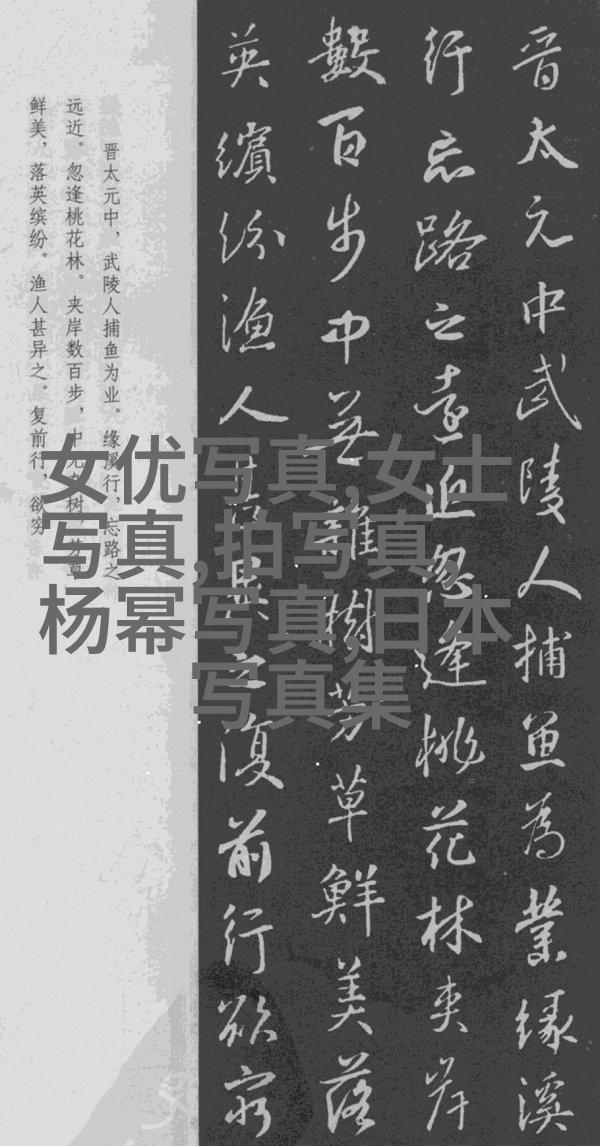 晋太元中武陵人捕魚為業緣溪
行忘路之遠近忽逢桃花林夾岸
數百步中無雜樹芳草鮮美落
英繽紛漁人甚異之復前行欲窮
晋太元中，武陵人捕鱼为业。缘溪行，忘路之
远近。忽逢桃花林。夹岸数百步，中无杂树，芳草
鲜美，落英缤纷。渔人甚异之。复前行，欲穷
女优写真,女士
写真,拍写真,
杨幂写真,日本
写真集